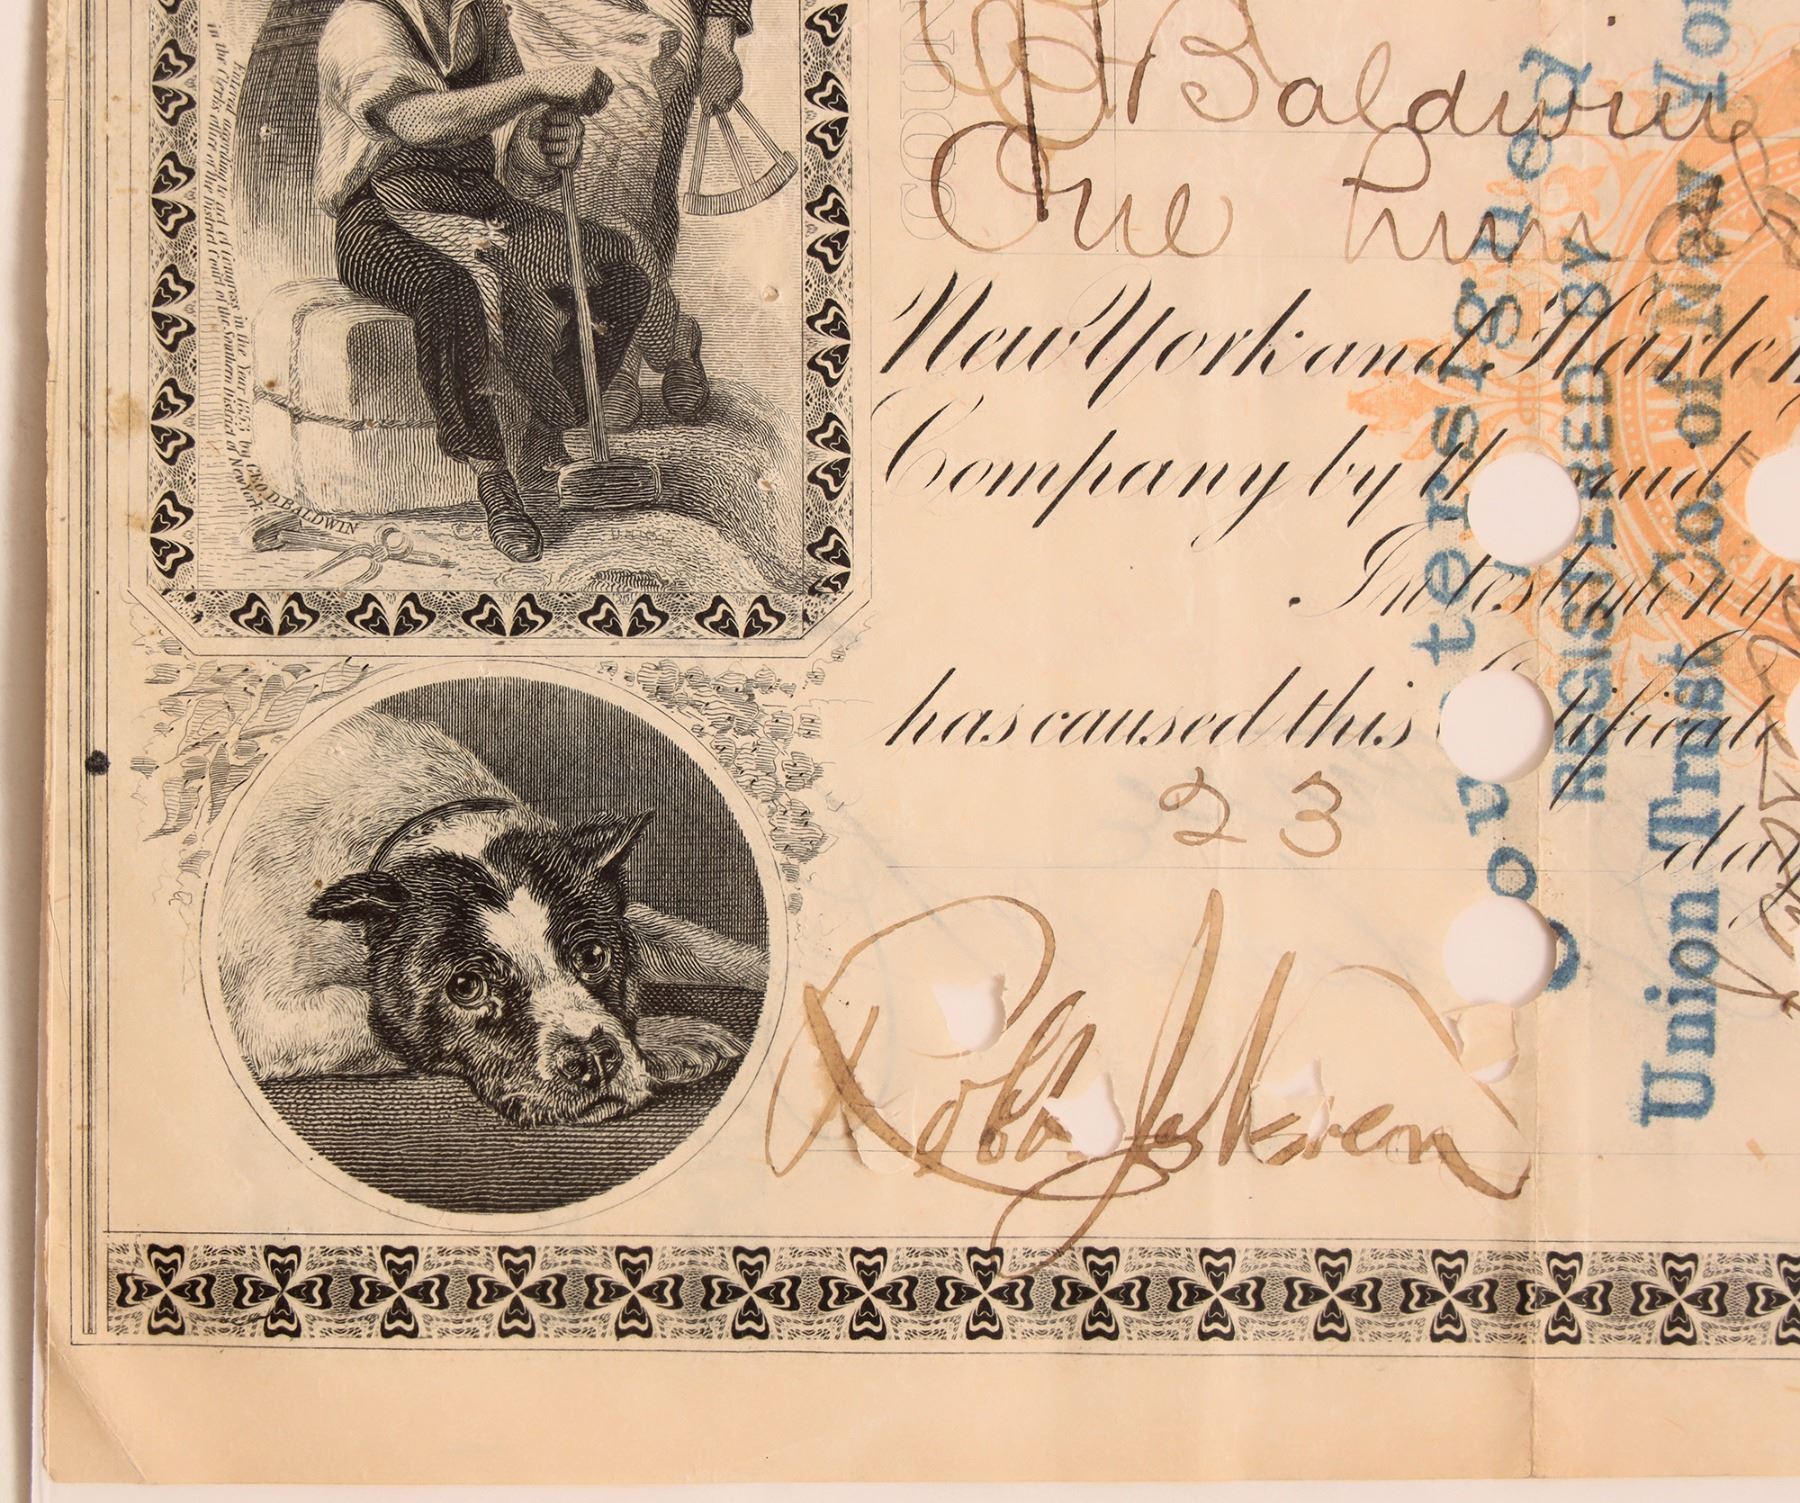 Entered according to act of Congress in the Year 1853 by GEO. D. BALDWIN
in the Clerks office of the district Court of the Southern District of New York.
COUN
Baldwin
One hun
New York and Harlem
Company by
In testimony
has caused this
23
day
Countersigned
REGISTERED BY
Union Trust Co. of New York